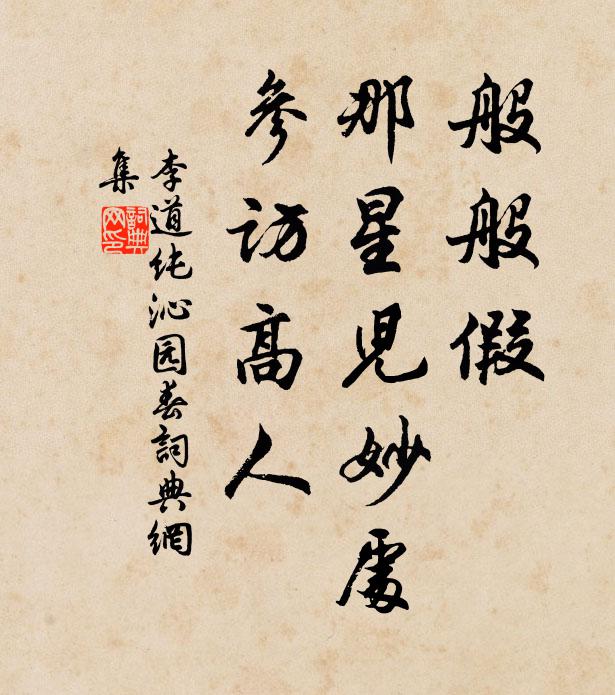 般般假
那星兒妙處
參访高人
李道纯沁园春詞典網
集
詞典
网印